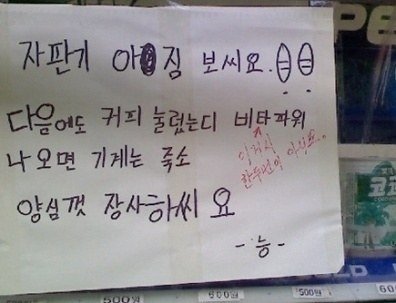 자판기 아짐 보씨요.
다음에도 커피 눌렀는디 비타파워
나오면 기계는 죽소
이게시
한두번이 아니요...
양심껏 장사하씨요
-능-
500원
600원
500원
600